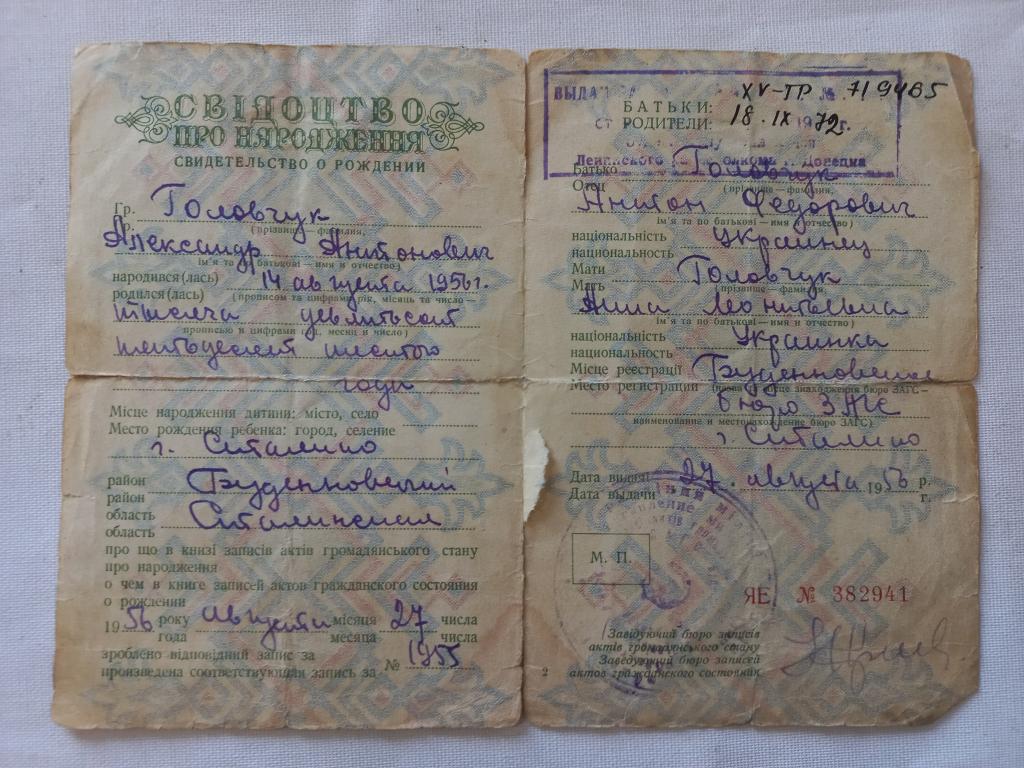 СВІДОЦТВО
ПРО НАРОДЖЕННЯ
СВИДЕТЕЛЬСТВО О РОЖДЕНИИ
Гр. Головчук
(прізвище — фамилия,
Александр Антонович
ім'я та по батькові — имя и отчество)
народився(лась) 14 августа 1956 г.
родился(лась) (прописом та цифрами рік, місяць та число —
тысяча девятьсот
прописью и цифрами год, месяц и число)
пятьдесят шестого
года
Місце народження дитини: місто, село
Место рождения ребенка: город, селение
г. Сталино
район Буденновский
район
область Сталинская
область
про що в книзі записів актів громадянського стану
про народження
о чем в книге записей актов гражданского состояния
о рождении
1956 року августа місяця 27 числа
года месяца числа
зроблено відповідний запис за
произведена соответствующая запись за № 1955
ВЫДАН XV-ГР № 719485
БАТЬКИ:
РОДИТЕЛИ: 18.IX 1972г.
Ленинского г. Донецка
Батько Головчук
Отец (прізвище — фамилия,
Антон Федорович
ім'я та по батькові — имя и отчество)
національність украинец
национальность
Мати Головчук
Мать (прізвище — фамилия,
Анна Леонтьевна
ім'я та по батькові — имя и отчество)
національність Украинка
национальность
Місце реєстрації Буденновское
Место регистрации (назва і місце знаходження бюро ЗАГС —
бюро ЗАГС
наименование и местонахождение бюро ЗАГС)
г. Сталино
Дата видачі 27 августа 1956 р.
Дата выдачи г.
М. П.
ЯЕ № 382941
Завідуючий бюро записів
актів громадянського стану
Заведующий бюро записей
актов гражданского состояния
2